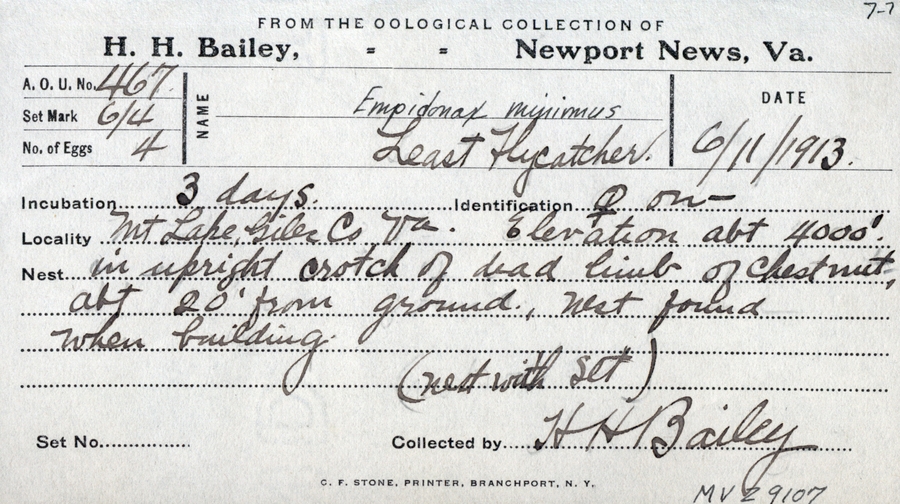 7-7
FROM THE OOLOGICAL COLLECTION OF
H. H. Bailey, = = Newport News, Va.
A. O. U. No. 467.
Set Mark 6/4
No. of Eggs 4
NAME
Empidonax minimus
Least Flycatcher.
DATE
6/11/1913.
Incubation 3 days. Identification ♀ on
Locality Mt Lake, Giles Co Va. Elevation abt 4000'.
Nest in upright crotch of dead limb of chestnut,
abt 20' from ground., nest found
when building.
(nest with set)
Set No. Collected by H H Bailey
C. F. STONE, PRINTER, BRANCHPORT, N. Y.
MVZ 9107